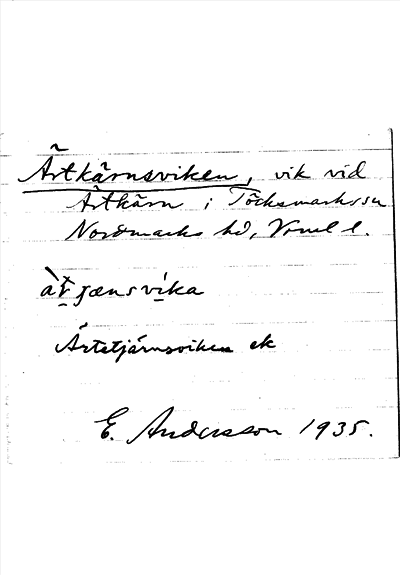 Ärtkärnsviken, vik vid
Ärtkärn i Töcksmarks sn
Nordmarks hd, Vrml l.
àt jænsvíka
Ärtetjärnsviken ek
E. Andersson 1935.